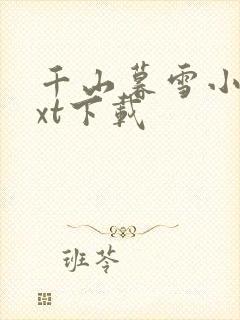 千山暮雪小
xt下载
班苓